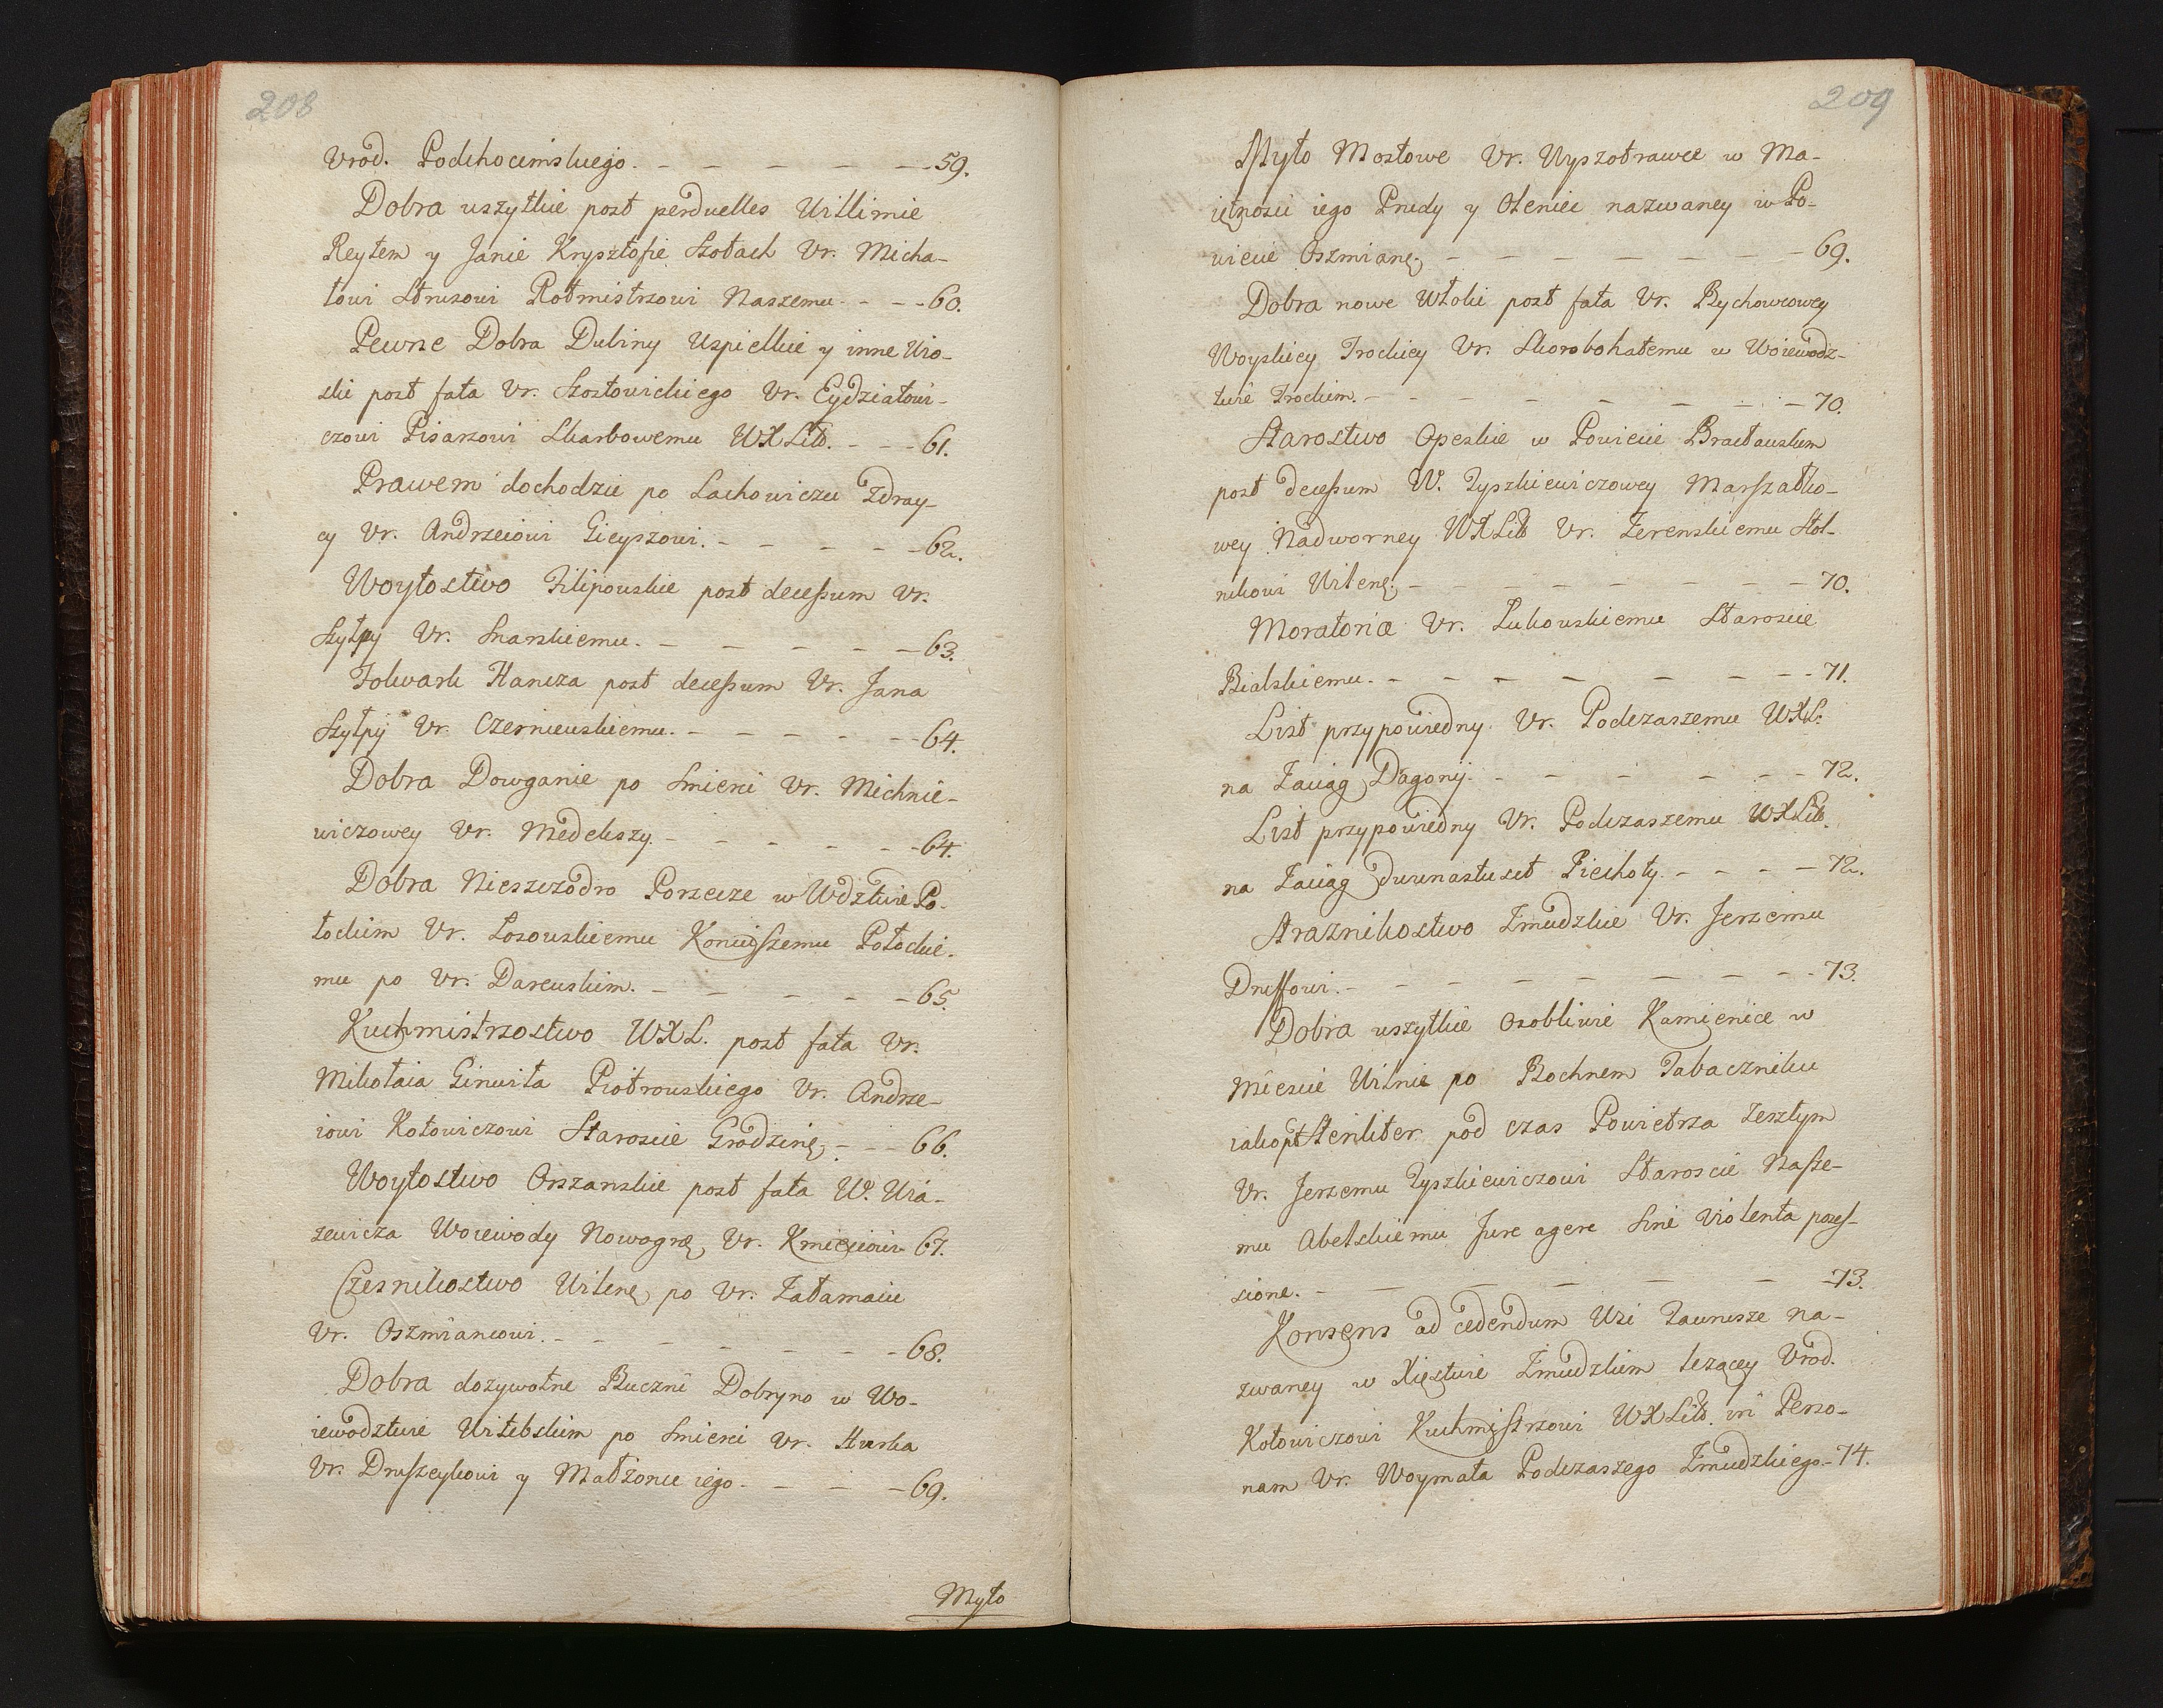 208
Vrod. Podchocimskiego. - - - - - 59.
Dobra wszytkie post perduelles Willimie
Reytem y Janie Krysztofie Szotach Vr. Micha-
łowi Strusowi Rotmistrzowi Naszemu - - - 60.
Pewne Dobra Dubiny Uspielkie y inne Wio-
ski post fata Vr. Szostowickiego Vr. Eydziatowi-
czowi Pisarzowi Skarbowemu WXLitt. - - - 61.
Prawem dochodzic po Lachowiczu Zdray-
cy Vr. Andrzeiowi Gieyszowi. - - - - - 62.
Woytostwo Filipowskie post decessum Vr.
Szytpy Vr. Snarskiemu. - - - - - 63.
Folwark Hancza post decessum Vr. Jana
Szytpy Vr. Czerniewskiemu. - - - - - 64.
Dobra Dowganie po Smierci Vr. Michnie-
wiczowey Vr. Medekszy. - - - - - 64.
Dobra Nieszczodro Porzecze w Wdztwie Po-
łockim Vr. Łosowskiemu Koniuszemu Połockie-
mu po Vr. Darewskim. - - - - - 65.
Kuchmistrzostwo WXL. post fata Vr.
Mikołaia Ginwita Piotrowskiego Vr. Andrze-
iowi Kotowiczowi Staroscie Grodzinę. - - - 66.
Woytostwo Orszanskie post fata W. Wia-
zewicza Woiewody Nowogrę. Vr. Kmicicowi 67.
Czesnikostwo Wilenę. po Vr. Zatamaiu
Vr. Oszmiancowi. - - - - - - 68.
Dobra dozywotne Buczni Dobryno w Wo-
iewodztwie Witebskim po Smierci Vr. Hurka
Vr. Druszeykowi y Małzonce iego. - - - 69.
Myto
209
Myto Mostowe Vr. Wyszotrawce w Ma-
iętnosci iego Prudy y Oleniec nazwaney w Po-
wiecie Oszmianę. - - - - - - - 69.
Dobra nowe Włoki post fata Vr. Rychowcowey
Woyskiey Trockiey Vr. Skorobohatemu w Woiewodz-
twie Trockim. - - - - - - - 70.
Starostwo Opeskie w Powiecie Bracławskim
post decessum W. Tyszkiewiczowey Marszałko-
wey Nadworney WXLitt Vr. Zerenskiemu Stol-
nikowi Wilenę. - - - - - - - 70.
Moratoria Vr. Łukowskiemu Staroscie
Bialskiemu. - - - - - - - 71.
List przypowiedny Vr. Podczaszemu WXL.
na Zaciąg Dragonij. - - - - - - 72.
List przypowiedny Vr. Podczaszemu WXLitt.
na Zaciąg dwunastuset Piechoty. - - - - 72.
Straznikostwo Zmudzkie Vr. Jerzemu
Druffowi. - - - - - - - 73.
Dobra wszytkie osobliwie Kamienice w
Miescie Wilnie po Rochnem Tabaczniku
iako pt Steriliter pod czas Powietrza Zeszłym
Vr. Jerzemu Tyszkiewiczowi Staroscie Nasze-
mu Abelskiemu Jure agere Sine violenta poses-
sione. - - - - - - 73.
Konsens ad cedendum Wsi Taunisze na-
zwaney w Xięstwie Zmudzkim lezącey Vrod.
Kotowiczowi Kuchmistrzowi WXLitt. in Perso-
nam Vr. Woymata Podczaszego Zmudzkiego. - 74.